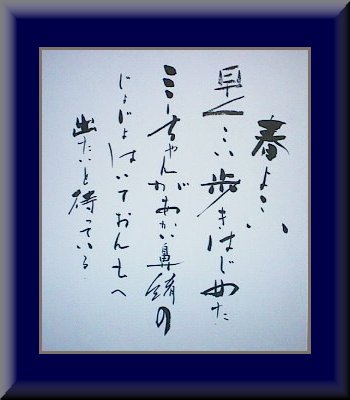 春よこい
早くこい歩きはじめた
ミーちゃんがあかい鼻緒の
じょじょはいておんもへ
出たいと待っている